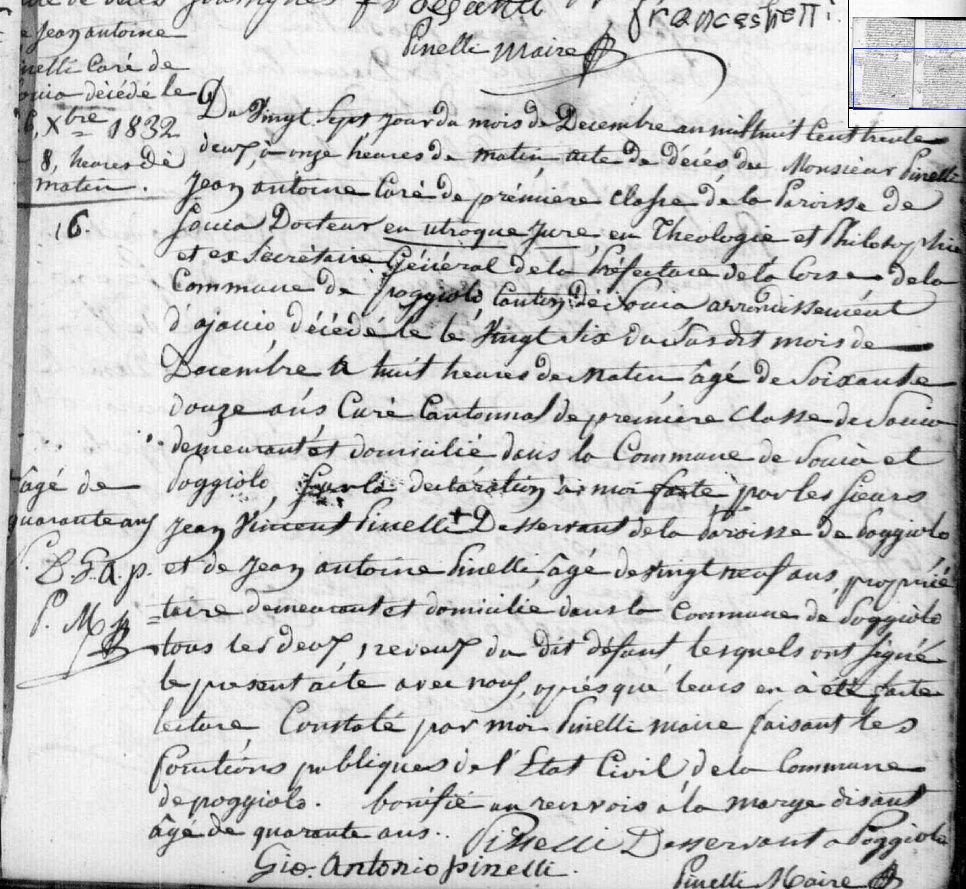 franceschetti
Pinelli Maire
Jean antoine
Pinelli Curé de
décédé le
Xbre 1832
8, heures de
matin.
16.
Du Vingt Sept jour du mois de Decembre an mil huit Cent trente
deux, à onze héures de matin acte de décés de Monsieur Pinelli
Jean antoine Curé de prémière Classe de la Paroisse de
Soucia Docteur en utroque jure, en Théologie et Philosophie
et ex Sécrétaire Général de la Préfecture de la Corse de la
Commune de poggiolo Canton de Soucia arrondissement
d'ajacio, décédé le le Vingt Six du Susdit mois de
Decembre a huit heures de Matin âgé de Soixante
douze ans Curé Cantonnal de première Classe de Soucia
demeurant et domicilié dans la Commune de Soucia et
Poggiolo, Sur la declaration à moi faite par les Sieurs
Jean Vincent Pinelli + Desservant de la Paroisse de Poggiolo
et de Jean antoine Pinelli, âgé de Vingt neuf ans, proprié
taire demeurant et domicilié dans la Commune de Poggiolo
tous les deux, neveux du dit défunt lesquels ont signé
le present acte avec nous, après que leurs en à été faite
lecture Constaté par moi Pinelli maire faisant les
fonctions publiques de l'Etat Civil de la Commune
de poggiolo. bonifié un renvois à la marge disant
âgé de quarante ans..
âgé de
quarante ans
P. M.
Pinelli Desservant a Poggiolo
Gio. Antonio Pinelli.
Pinelli Maire